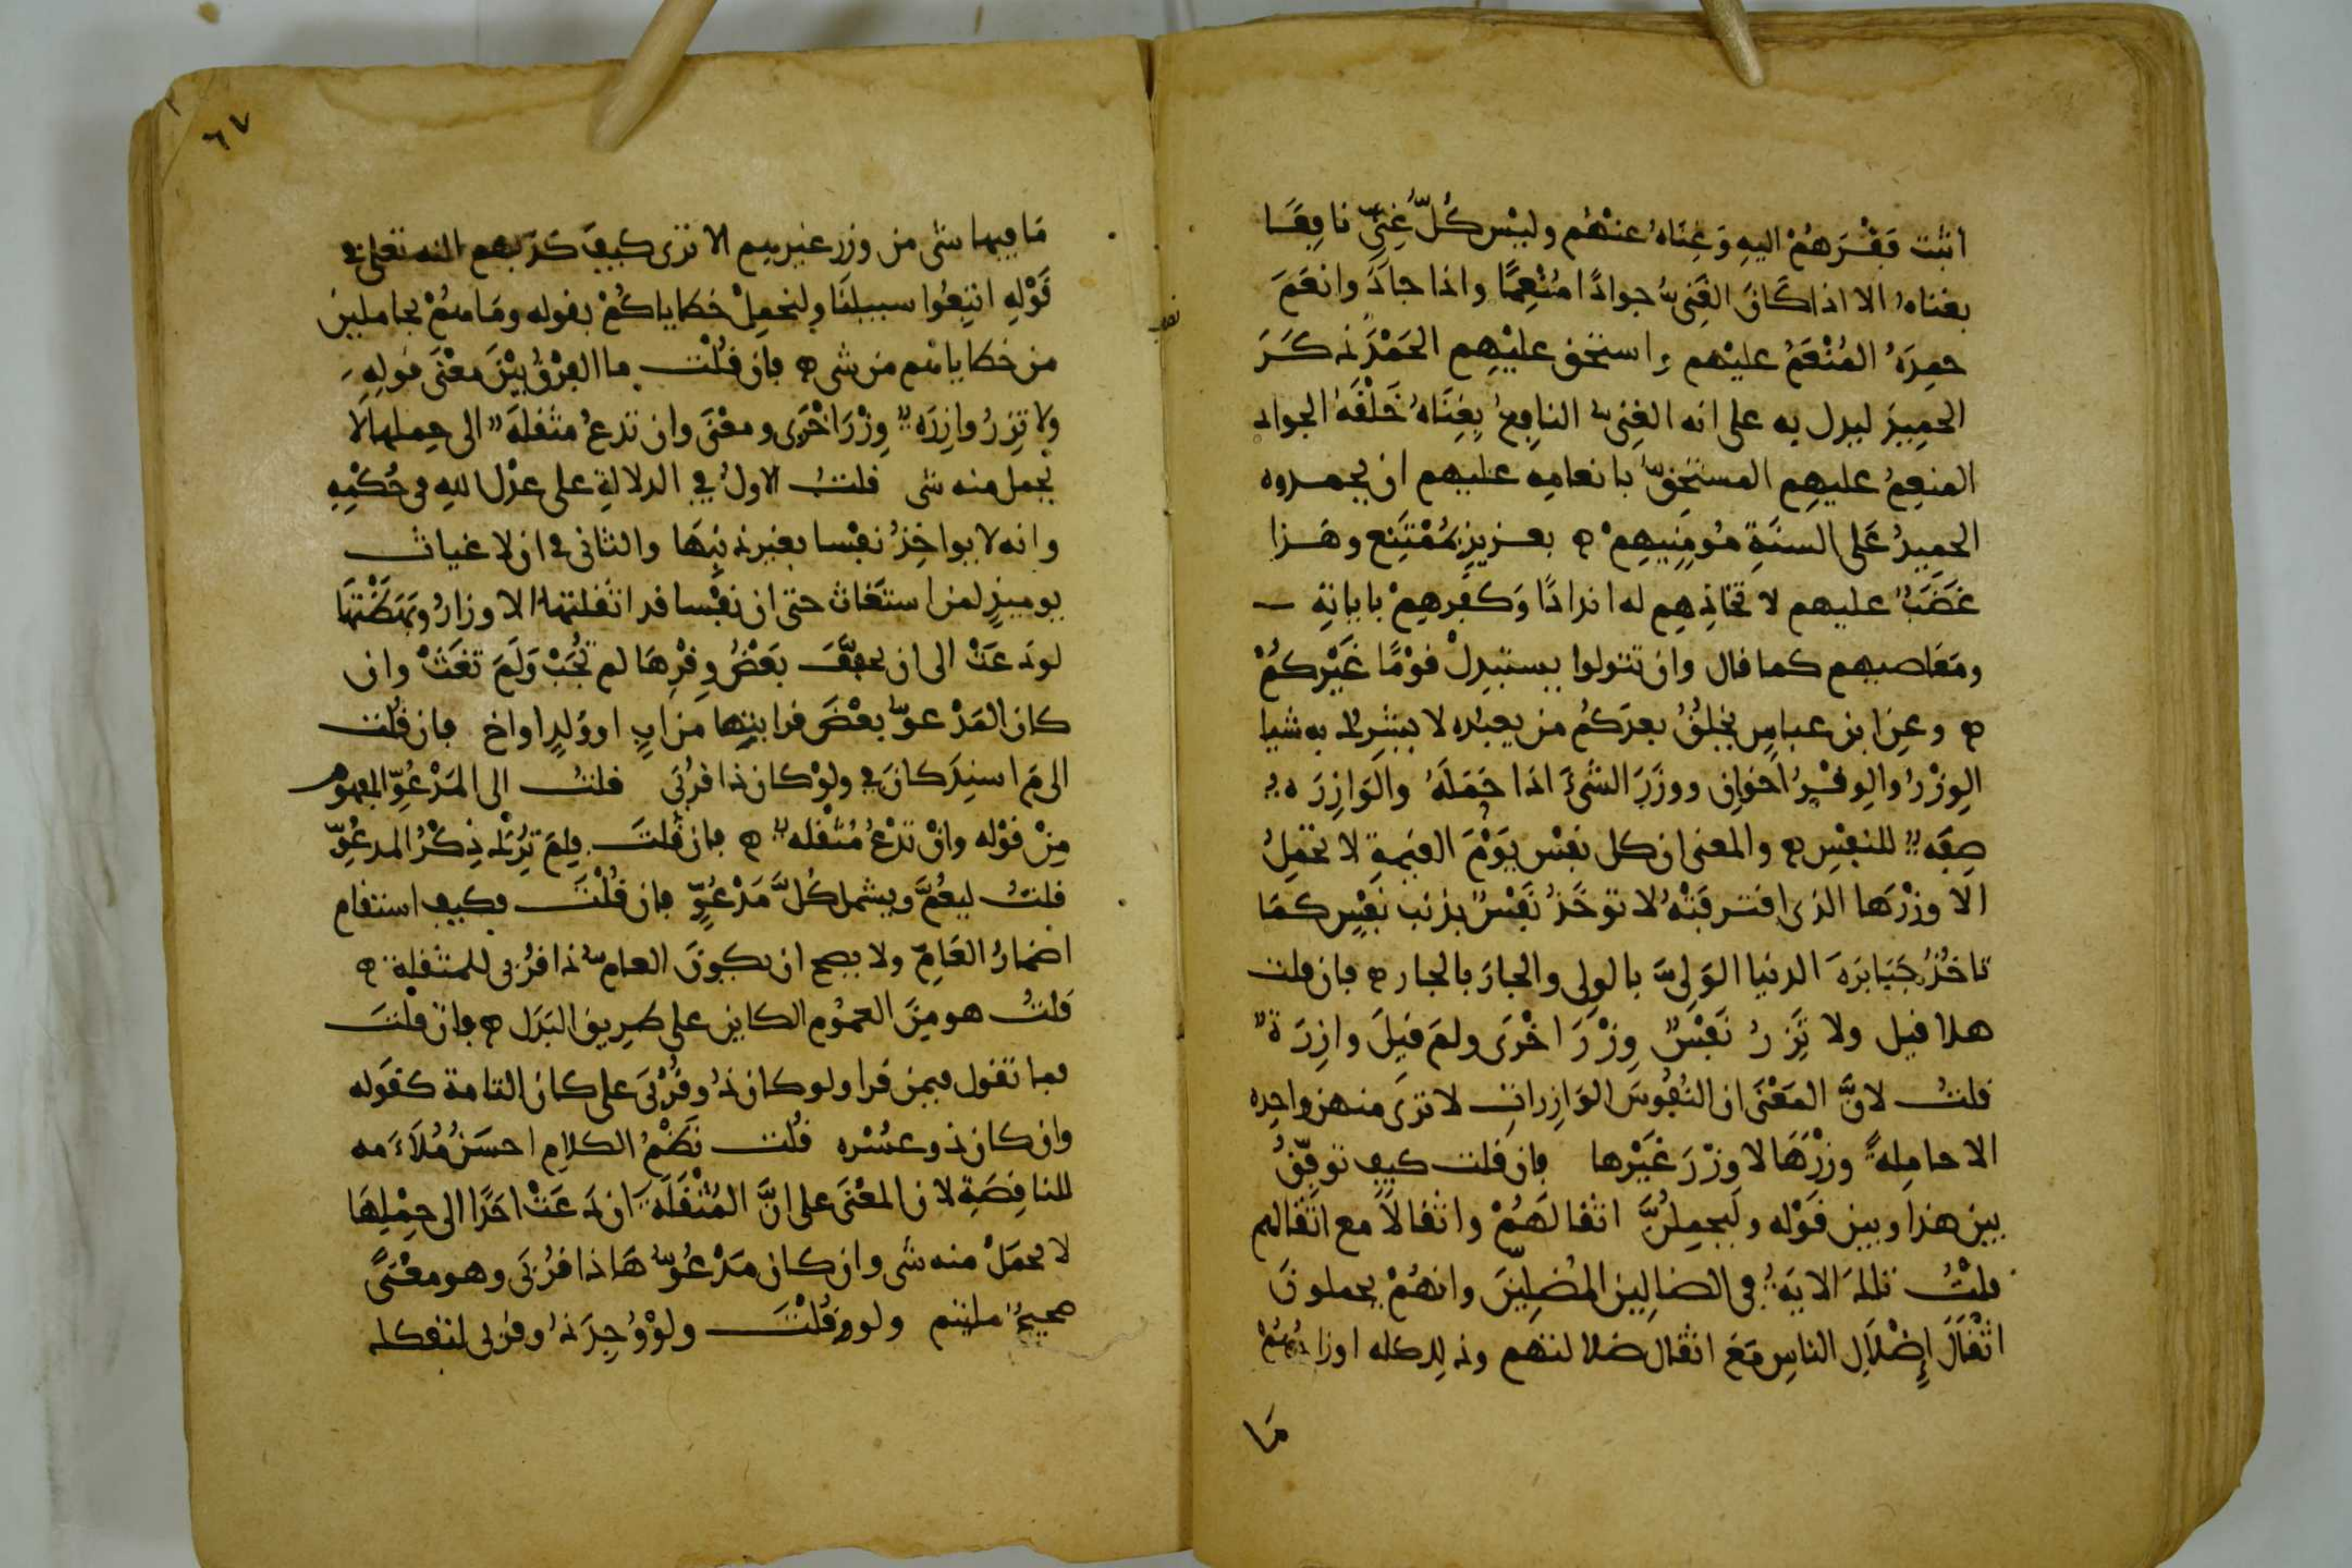 اثبت فقرهم اليه وغناه عنهم وليس كل غني نافعا
بغناه الا اذا كان الغني جوادا منعما واذا جاد وانعم
حمده المنعم عليهم واستحق عليهم الحمد ذكر
الحميد ليدل به على انه الغني النافع بغناه خلقه الجواد
المنعم عليهم المستحق بانعامه عليهم ان يحمدوه
الحميد على السنة مومنيهم بعزيز بممتنع وهذا
غضب عليهم لاتخاذهم له اندادا وكفرهم باياته
ومعاصيهم كما قال وان تتولوا يستبدل قوما غيركم
وعن ابن عباس يخلق بعدكم من يعبده لا يشرك به شيا
الوزر والوقر اخوان ووزر الشيء اذا حمله والوازرة
صفة للنفس والمعنى ان كل نفس يوم القيمة لا تحمل
الا وزرها الذي اقترفته لا توخذ نفس بذنب نفس كما
تاخذ جبابرة الدنيا الولي بالولي والجار بالجار فان قلت
هلا قيل ولا تزر نفس وزر اخرى ولم قيل وازرة
قلت لان المعنى ان النفوس الوازرات لا ترى منهن واحده
الا حاملة وزرها لا وزر غيرها فان قلت كيف توفق
بين هذا وبين قوله وليحملن اثقالهم واثقالا مع اثقالهم
قلت تلك الاية في الضالين المضلين وانهم يحملون
اثقال إضلال الناس مع اثقال ضلالتهم وذلك كله اوزارهم
ما
٦٧
ما فيها شي من وزر غيرهم الا ترى كيف كذبهم الله تعلى في
قوله اتبعوا سبيلنا ولنحمل خطاياكم بقوله وما هم بحاملين
من خطاياهم من شي فان قلت ما الفرق بين معنى قوله
ولا تزر وازرة وزر اخرى ومعنى وان تدع مثقلة الى حملها لا
يحمل منه شي قلت الاول في الدلالة على عدل الله في حكمه
وانه لا يواخذ نفسا بغير ذنبها والثاني في ان لا غياث
يوميذ لمن استغاث حتى ان نفسا قد اثقلتها الاوزار وبهضتها
لو دعت الى ان يخفف بعض وقرها لم تجب ولم تغث وان
كان المدعو بعض قرابتها من اب او ولد او اخ فان قلت
الى م اسند كان في ولو كان ذا قربى قلت الى المدعو المفهوم
من قوله وان تدع مثقله فان قلت فلم ترك ذكر المدعو
قلت ليعم ويشمل كل مدعو فان قلت فكيف استقام
اضمار العام ولا يصح ان يكون العام ذا قربى للمثقلة
قلت هو من العموم الكاين على طريق البدل فان قلت
فما تقول فيمن قرا ولو كان ذو قربى على كان التامة كقوله
وان كان ذو عسره قلت نظم الكلام احسن ملاءمه
للناقصة لان المعنى على ان المثقلة ان دعت احدا الى حملها
لا يحمل منه شي وان كان مدعوها ذا قربى وهو معنى
صحيح ملتيم ولو قلت ولو وجد ذو قربى لتفكك